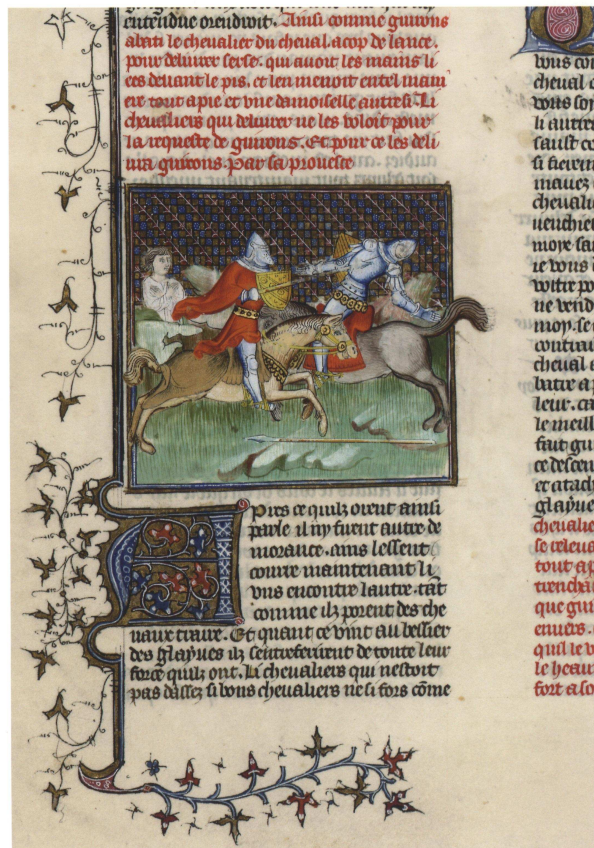 entendue orendroit. Ainsi comme guirons
abati le cheualier du cheual. acop de lance.
pour deliurer serse. qui auoit les mains li
ees deuant le pis. et len menoit entel mani
ere tout a pie et vne damoiselle autresi. Li
cheualiers qui deliurer ne les voloit pour
la requeste de guirons. Et pour ce les deli
ura guirons. Par sa prouesce
Apres ce quilz orent ainsi
parle il ny furent autre de
morance. ains lessent
courre maintenant li
vns encontre lautre. tāt
comme ilz porent des che
uaux traire. Et quant ce vint au bessier
des glayues ilz sentreferirent de toute leur
force quilz ont. Li cheualiers qui nestoit
pas dassez si bons cheualiers ne si fors cōme
vous
cheual
vous
li autre
sault
si
mauez
cheualie
more
ie vous
ne vend
moy. se
cheual
leur.
le meill
fait gui
ce
et atach
glayue
cheualie
se releua
tout a p
que gui
enuers.
quil le
le heau
fort a so